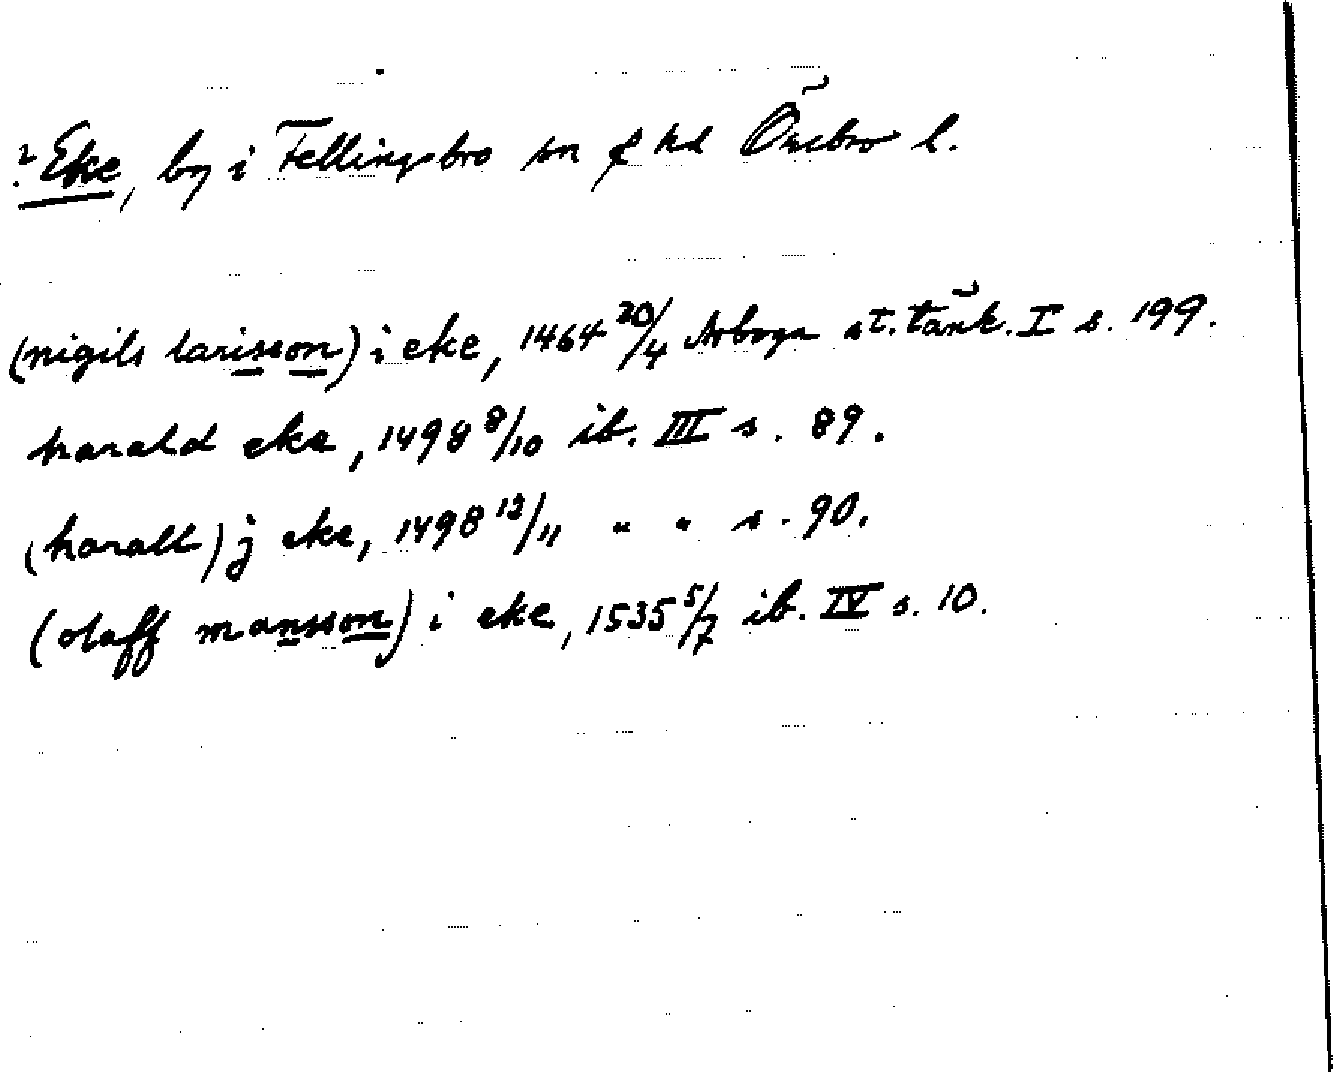 ? Eke, by i Fellingsbro sn & hd Örebro l.
(nigils larisson) i eke, 1464 20/4 Arboga st. tänk. I s. 199.
harald eke, 1498 8/10 ib. III s. 89.
(harall) j eke, 1498 12/11 " " s. 90.
(olaff mansson) i eke, 1535 5/7 ib. IV s. 10.